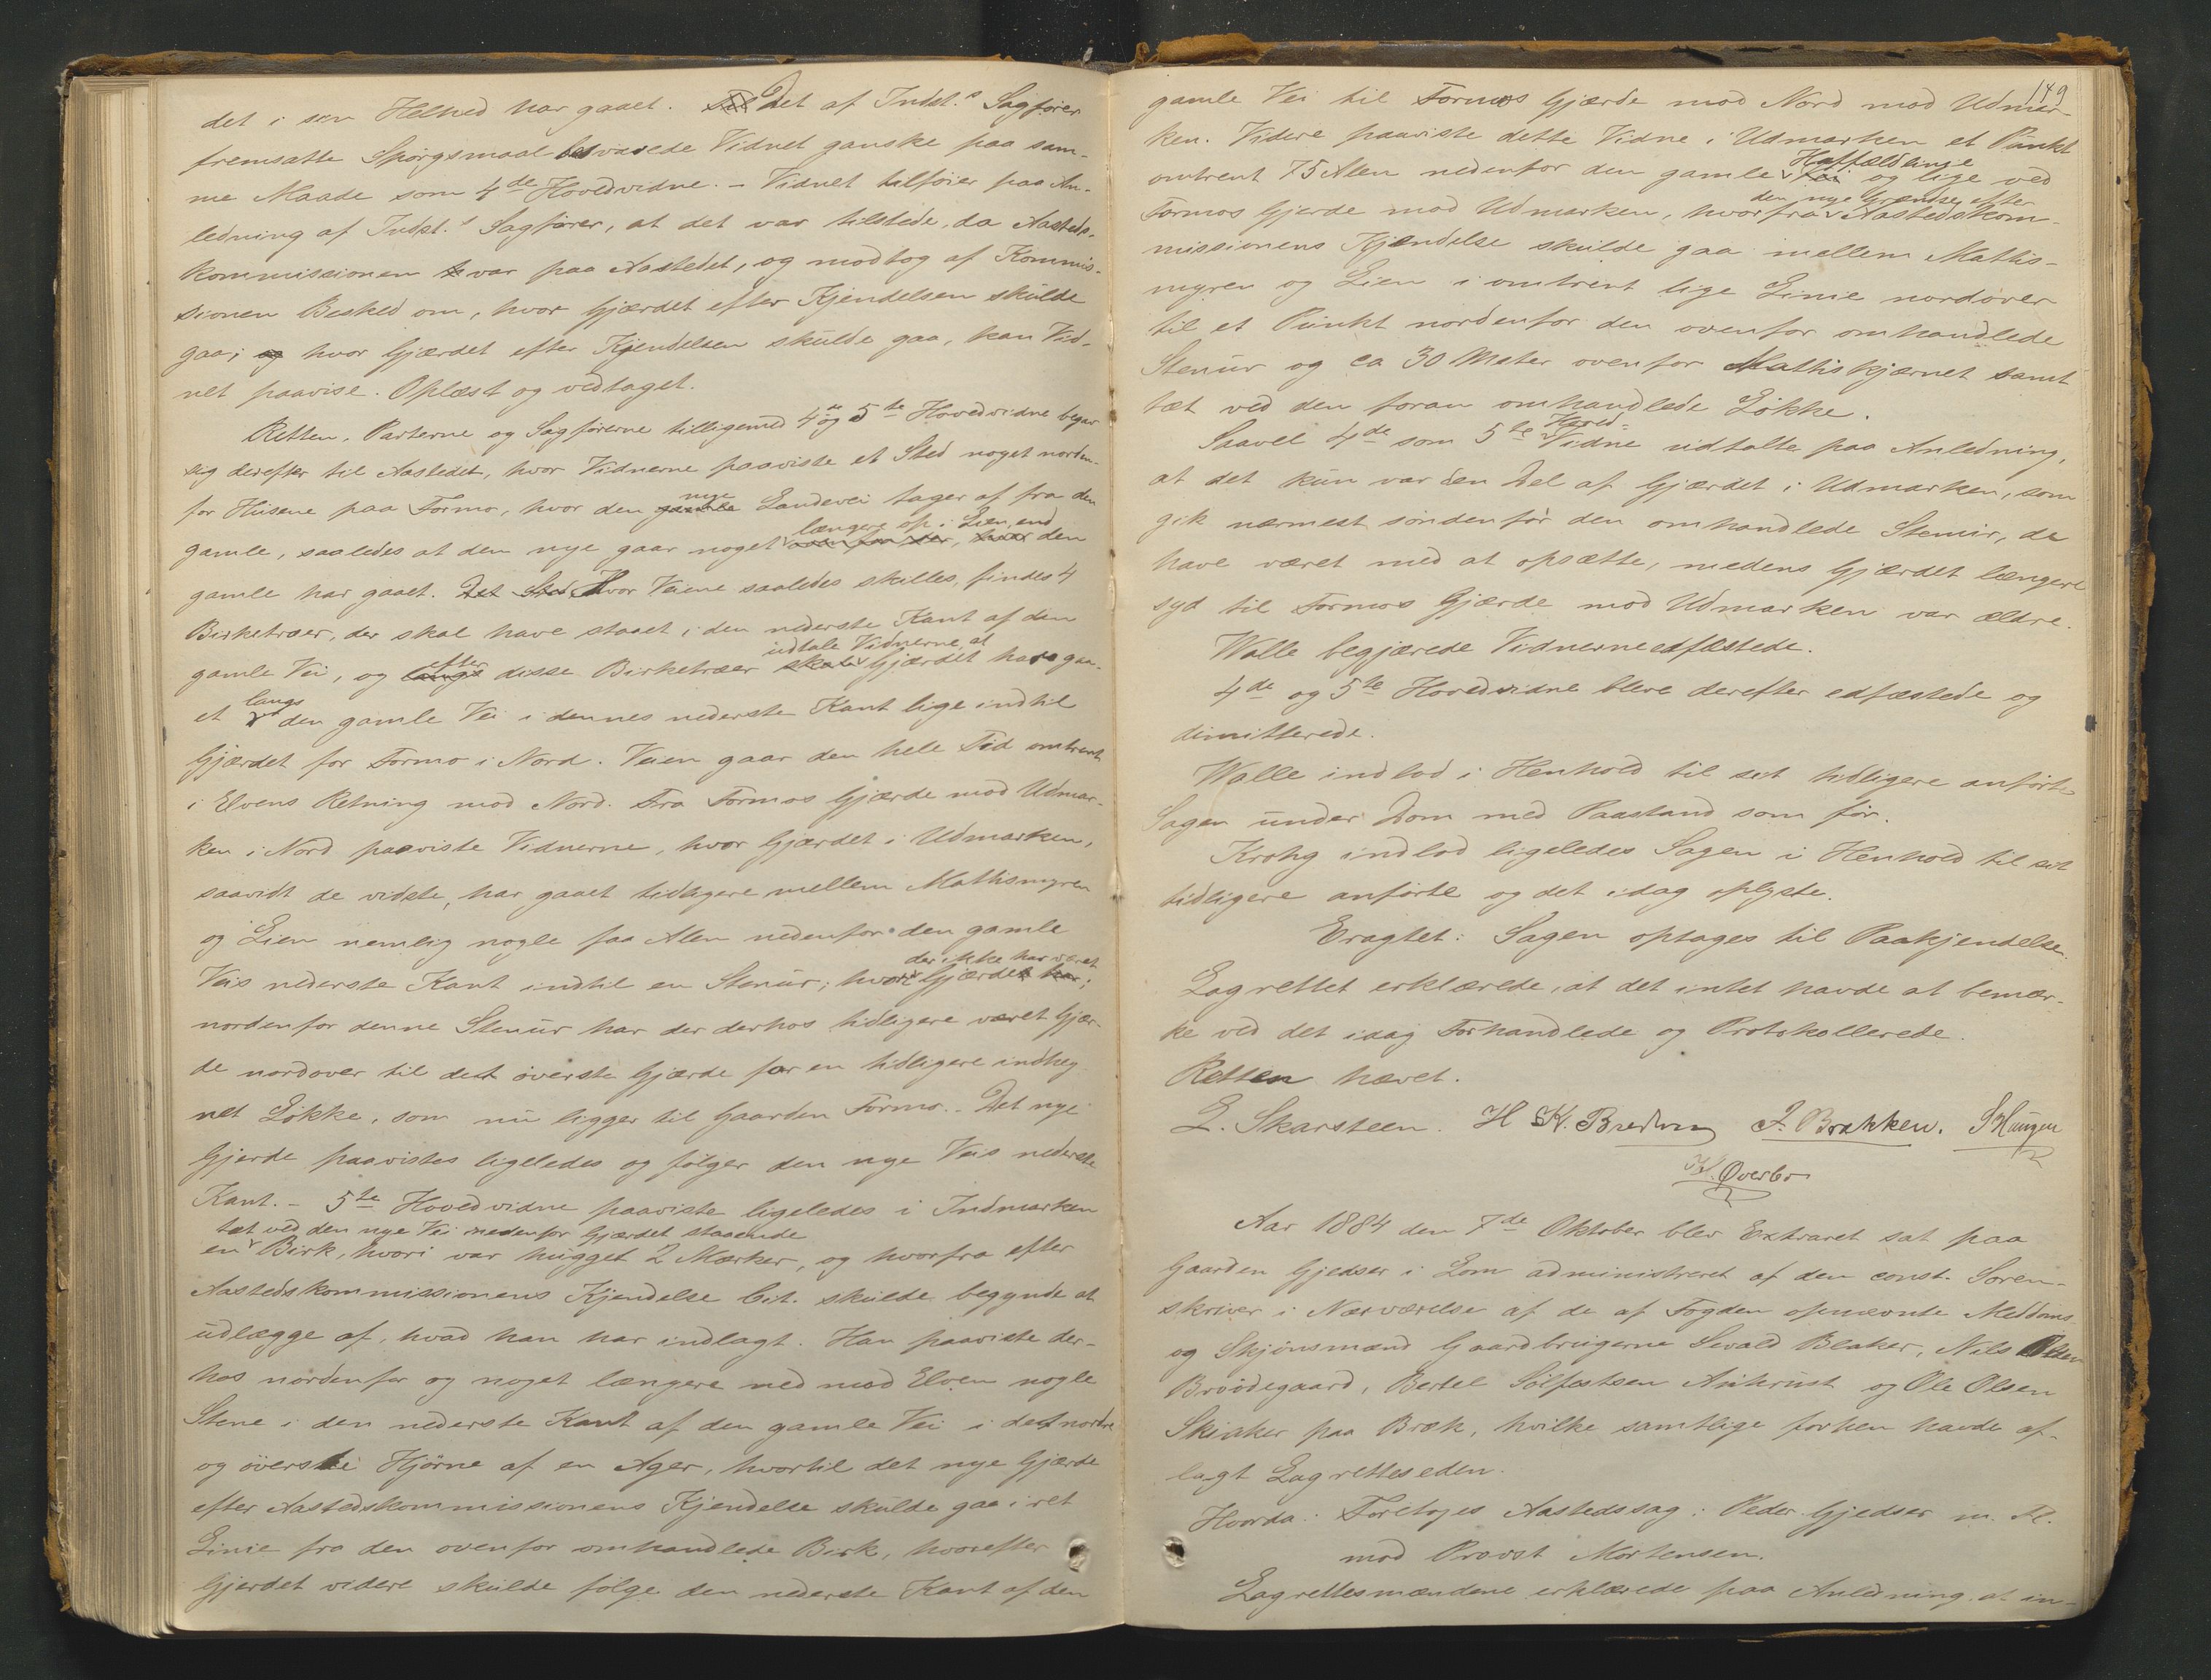 det i sin Helhed har gaaet. Det af Indst.s Sagfører
fremsatte Spørgsmaal besvarede Vidnet ganske paa sam-
me Maade som 4de Hovedvidne. – Vidnet tilføier paa An-
ledning af Indst.s Sagfører, at det var tilstede, da Aasteds-
kommissionen var paa Aastedet, og modtog af Kommis-
sionen Besked om, hvor Gjærdet efter Kjendelsen skulde
gaa; og hvor Gjærdet efter Kjendelsen skulde gaa, kan Vid-
net paavise. Oplæst og vedtaget.
Retten, Parterne og Sagførerne tilligemed 4de og 5te Hovedvidne begav
sig derefter til Aastedet, hvor Vidnerne paaviste et Sted noget norden-
for Husene paa Formo, hvor den gamle nye Landevei tager af fra den
gamle, saaledes at den nye gaar noget længere op i Lien, end den
gamle har gaaet. Det Sted Hvor Veiene saaledes skilles, findes 4
Birketræer, der skal have staaet i den nederste Kant af den
gamle Vei, og langs efter disse Birketræer skal udtale Vidnerne, at Gjærdet have gaa-
et langs den gamle Vei i dennes nederste Kant lige indtil
Gjærdet for Formo i Nord. Veien gaar den hele Tid omtrent
i Elvens Retning mod Nord. Fra Formos Gjærde mod Udmar-
ken i Nord paaviste Vidnerne, hvor Gjærdet i Udmarken,
saavidt de vidste, har gaaet tidligere mellem Mathismyren
og Lien nemlig nogle faa Alen nedenfor den gamle
Veis nederste Kant indtil en Stenur, hvor der ikke har været Gjærdet har;
nordenfor denne Stenur har der derhos tidligere været Gjær-
de nordover til det øverste Gjærde for en tidligere indheg
net Løkke, som nu ligger til Gaarden Formo. – Det nye
Gjerde paavistes ligeledes og følger den nye Veis nederste
Kant. – 5te Hovedvidne paaviste ligeledes i Indmarken
tæt ved den nye Vei nedenfor Gjærdet staaende
en Birk, hvori var hugget 2 Mærker, og hvorfra efter
Aastedskommissionens Kjendelse Cit. skulde begynde at
udlægge af, hvad han har indlagt. Han paaviste der-
hos nordenfor og noget længere ned mod Elven nogle
Stene i den nederste Kant af den gamle Vei i det nordre
og øverste Hjørne af en Ager, hvortil det nye Gjærde
efter Aastedskommissionens Kjendelse skulde gaa i ret
Linie fra den ovenfor omhandlede Birk, hvorefter
Gjerdet videre skulde følge den nederste Kant af den
149
gamle Vei til Formos Gjærde mod Nord mod Udmar
ken. Videre paaviste dette Vidne i Udmarken et Punkt
omtrent 75 Alen nedenfor den gamle Vei og lige ved
Formos Gjerde mod Udmarken, hvorfra den nye Grændse efter Aastedskom-
missionens Kjendelse skulde gaa mellem Mathis-
myren og Lien i omtrent lige Linie nordover
til et Punkt nordenfor den ovenfor omhandlede
Stenur og ca 30 Meter ovenfor Mathiskjærnet samt
tæt ved den foran omhandlede Løkke.
Saavel 4de som 5te Hoved-Vidne udtalte paa Anledning,
at det kun var den Del af Gjærdet i Udmarken, som
gik nærmest søndenfor den omhandlede Stenur, de
have været med at opsætte, medens Gjærdet længere
syd til Formos Gjærde mod Udmarken var ældre.
Walle begjærede Vidnerne edfæstede.
4de og 5te Hovedvidne bleve derefter edfæstede og
dimitterede.
Walle indlod i Henhold til sit tidligere anførte
Sagen under Dom med Paastand som før.
Krohg indlod ligeledes Sagen i Henhold til sit
tidligere anførte og det idag oplyste.
Eragtet: Sagen optages til Paakjendelse.
Lagrettet erklærede, at det intet havde at bemær-
ke ved det idag Forhandlede og Protokollerede.
Retten hævet.
L. Skarsteen. H K. Bredvei J. Brakken. S Haugen
H. Øverbø
Aar 1884 den 7de Oktober blev Extraret sat paa
Gaarden Gjedser i Lom administreret af den const. Soren-
skriver i Nærværelse af de af Fogden opnævnte Meddoms-
og Skjønsmænd Gaardbrugerne Sevald Blaker, Nils Olsen
Brødegaard, Bertel Sølfestsen Aukrust og Ole Olsen
Skiaker paa Bræk, hvilke samtlige forhen havde af-
lagt Lagretteseden.
Hvorda: Foretoges Aastedssag: Peder Gjedser m. Fl.
mod Provst Mortensen.
Lagrettesmændene erklærede paa Anledning at in-